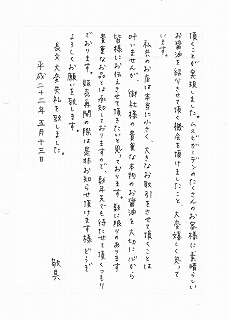 頂くことが実現しました。ムスビガーデンのたくさんのお客様に素晴らしい
お醤油を紹介させて頂く機会を頂けましたこと、大変嬉しく思って
います。
私共のお店は本当に小さく、大きなお取引をさせて頂くことは
叶いませんが、御社様の貴重な本物のお醤油を大切に心から
皆様にお伝えさせて頂きたいと思っております。数に限りのあります
貴重なお品とは承知しておりますので、数年先でも待たせて頂くつもり
でおります。販売再開の際は是非お知らせ頂けます様どうぞ
よろしくお願い致します。
長文大変失礼を致しました。
敬具
平成二十二年五月十三日